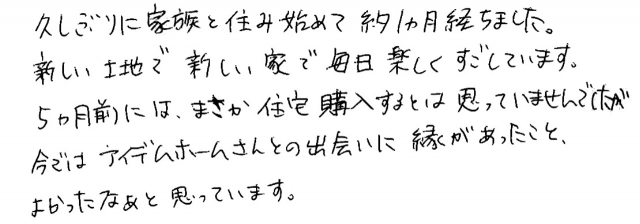 久しぶりに家族と住み始めて約1カ月経ちました。
新しい土地で新しい家で毎日楽しくすごしています。
5ヵ月前には、まさか住宅購入するとは思っていませんでしたが
今ではアイデムホームさんとの出会いに縁があったこと、
よかったなぁと思っています。